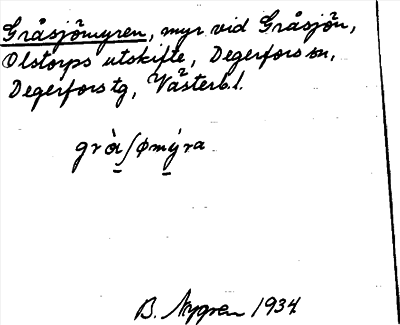 Gråsjömyren, myr vid Gråsjön,
Olstorps utskifte, Degerfors sn,
Degerfors tg, Västerb. l.
grὰʃømýra
B. Nygren 1934